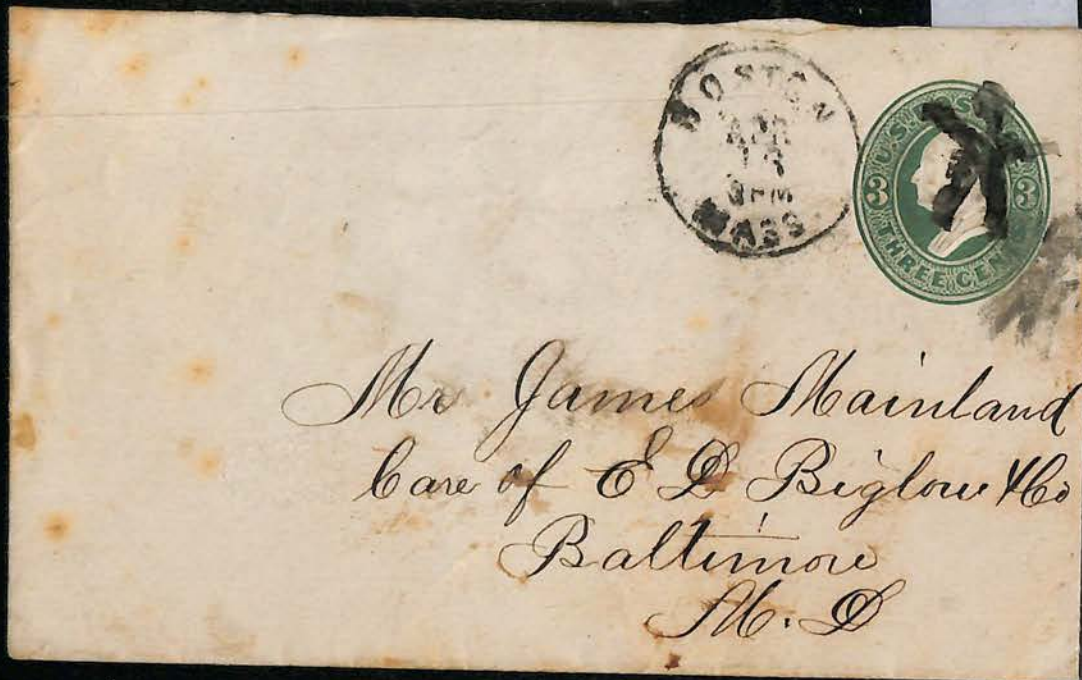 BOSTON
APR
13
MASS.
U.S. POSTAGE
3 3
THREE CENTS
Mr James Mainland
Care of E D Biglow & Co
Baltimore
M. D